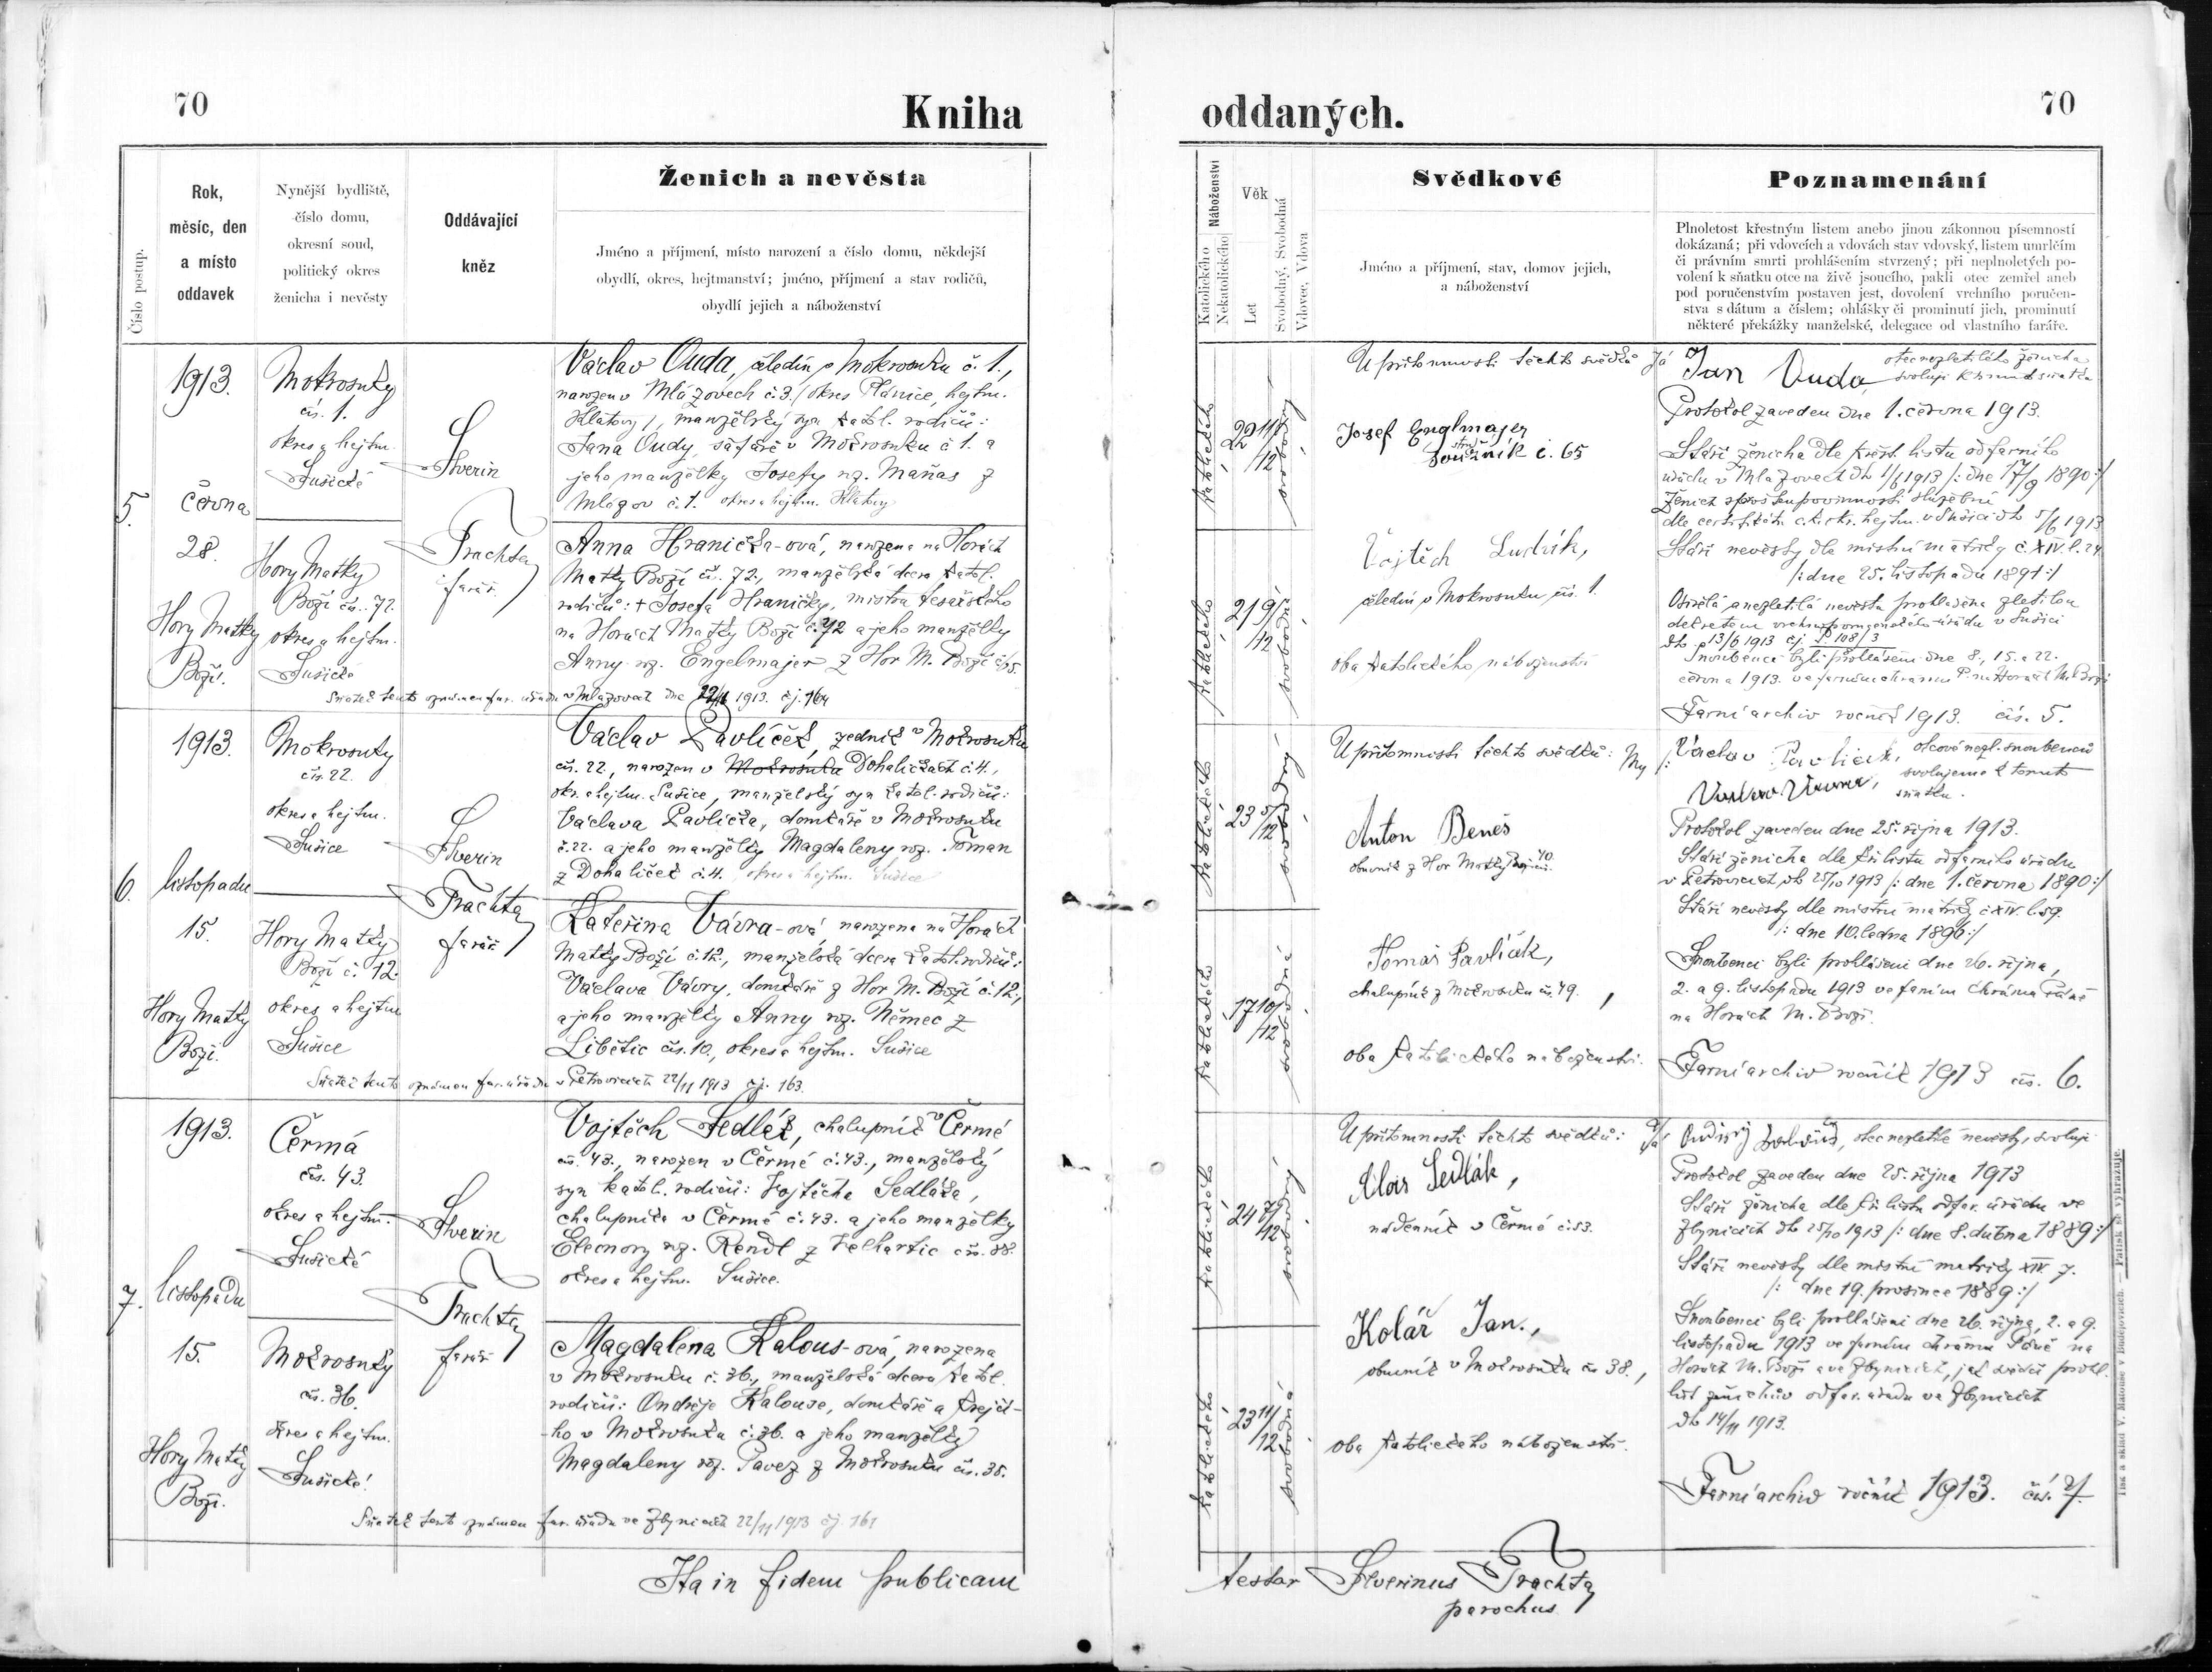 70
Kniha
oddaných.
70
Číslo postup.
Rok,
měsíc, den
a místo
oddavek
Nynější bydliště,
číslo domu,
okresní soud,
politický okres
ženicha i nevěsty
Oddávající
kněz
Ženich a nevěsta
Jméno a příjmení, místo narození a číslo domu, někdejší
obydlí, okres, hejtmanství; jméno, příjmení a stav rodičů,
obydlí jejich a náboženství
Náboženství
Katolického
Nekatolického
Věk
Let
Svobodný, Svobodná
Vdovec, Vdova
Svědkové
Jméno a příjmení, stav, domov jejich,
a náboženství
Poznamenání
Plnoletost křestným listem anebo jinou zákonnou písemností
dokázaná; při vdovcích a vdovách stav vdovský, listem umrlčím
či právním smrti prohlášením stvrzený; při neplnoletých po-
volení k sňatku otce na živě jsoucího, pakli otec zemřel aneb
pod poručenstvím postaven jest, dovolení vrchního poručen-
stva s dátum a číslem; ohlášky či prominutí jich, prominutí
některé překážky manželské, delegace od vlastního faráře.
5.
1913.
června
28.
Hory Matky
Boží.
Mokrosuky
čís. 1.
okres a hejtm.
Sušické
Hory Matky
Boží čís. 72.
okres a hejtm.
Sušické
Severin
Trachta
farář.
Václav Ouda, čeledín v Mokrosuku č. 1.,
narozen v Mlázovech č. 3. / okres Plánice, hejtm.
Klatovy /, manželský syn katol. rodičů:
Jana Oudy, šafáře v Mokrosuku č 1. a
jeho manželky Josefy roz. Maňas z
Mlázov č. 1. okres a hejtm. Klatovy
Anna Hranička-ová, narozena na Horách
Matky Boží čís. 72., manželská dcera katol.
rodičů: + Josefa Hraničky, mistra tesařského
na Horách Matky Boží č. 72 a jeho manželky
Anny roz. Engelmajer z Hor M. Boží č. 65.
Sňatek tento oznámen far. úřadu v Mlázovech dne 1913. čj. 164
katolického
22 11/12
svobodný
katolického
21 9/12
svobodná
U přítomnosti těchto svědků
Josef Englmajer
soužník č. 65
Vojtěch Ludvík,
čeledín v Mokrosuku čís. 1.
oba katolického náboženství
Já Jan Ouda
otec nezletilého ženicha
svoluji k tomuto sňatku
Protokol zaveden dne 1. června 1913.
Stáří ženicha dle křest. listu od farního
úřadu v Mlázovech dto 1/6 1913 /: dne 17/9 1890 :/
Ženich sproštěn povinnosti služební
dle certifikátu c.k. okr. hejtm. v Sušici dto 5/6 1913
Stáří nevěsty dle místní matriky č. XIV. l. 24
/: dne 25. listopadu 1891 :/
Osiřelá a nezletilá nevěsta prohlášena zletilou
dekretem vrchnoporučenského úřadu v Sušici
dto 13/6 1913 čj P 108/3
Snoubenci byli prohlášeni dne 8., 15. a 22.
června 1913. ve farním chrámu P. na Horách M. Boží
Farní archiv ročník 1913. čís. 5.
6.
1913.
listopadu
15.
Hory Matky
Boží.
Mokrosuky
čís. 22.
okres a hejtm.
Sušice
Hory Matky
Boží č. 12.
okres a hejtm
Sušice
Severin
Trachta
farář
Václav Pavlíček, zedník v Mokrosuku
čís. 22., narozen v Mokrosuku Dohaličkách č. 4.,
okr. a hejtm. Sušice, manželský syn katol. rodičů:
Václava Pavlíčka, domkáře v Mokrosuku
č. 22. a jeho manželky Magdaleny roz. Toman
z Dohaliček č. 4. okres a hejtm. Sušice
Kateřina Vávra-ová narozena na Horách
Matky Boží č. 12., manželská dcera katol. rodičů:
Václava Vávry, domkáře z Hor M. Boží č. 12.,
a jeho manželky Anny roz. Němec z
Libětic čís. 10., okres a hejtm. Sušice
Sňatek tento oznámen far. úřadu v Petrovicích 22/11 1913 čj. 163.
katolického
23 5/12
svobodný
katolického
17 10/12
svobodná
U přítomnosti těchto svědků:
Anton Beneš
obuvník z Hor Matky Boží čís. 40.
Tomáš Pavlíček,
chalupník z Mokrosuku čís. 49.
oba katolického náboženství.
My /: Václav Pavlíček,
otcové nezl. snoubenců
svolujeme k tomuto
sňatku.
Protokol zaveden dne 25. října 1913.
Stáří ženicha dle kř. listu od farního úřadu
v Petrovicích dto 25/10 1913 /: dne 1. června 1890 :/
Stáří nevěsty dle místní matriky č XIV l. 59.
/: dne 10. ledna 1896 :/
Snoubenci byli prohlášeni dne 26. října,
2. a 9. listopadu 1913 ve farním chrámu Páně
na Horách M. Boží.
Farní archiv ročník 1913 čís. 6.
7.
1913.
listopadu
15.
Hory Matky
Boží.
Čermá
čís. 43.
okres a hejtm.
Sušické
Mokrosuky
čís. 36.
okres a hejtm.
Sušické
Severin
Trachta
farář
Vojtěch Sedlák, chalupník v Čermé
čís. 43., narozen v Čermé č. 43., manželský
syn katol. rodičů: Vojtěcha Sedláka,
chalupníka v Čermé č. 43. a jeho manželky
Eleonory roz. Rendl z Velhartic čís. 88.
okres a hejtm. Sušice.
Magdalena Kalous-ová, narozena
v Mokrosuku č. 36., manželská dcera katol.
rodičů: Ondřeje Kalouse, domkáře a krejčí-
ho v Mokrosuku č. 36. a jeho manželky
Magdaleny roz. Pavez z Mokrosuku čís. 35.
Sňatek tento oznámen far. úřadu ve Zbynicích 22/11 1913 čj. 161
katolického
24 7/12
svobodný
katolického
23 11/12
svobodná
U přítomnosti těchto svědků:
Alois Sedlák,
nádenník v Čermé č. 53.
Kolář Jan.,
obuvník v Mokrosuku čís 38.,
oba katolického náboženství.
Já otec nezletilé nevěsty, svoluji
Protokol zaveden dne 25. října 1913
Stáří ženicha dle kř. listu od far. úřadu ve
Zbynicích dto 25/10 1913 /: dne 8. dubna 1889 :/
Stáří nevěsty dle místní matriky XIV. 7.
/: dne 19. prosince 1889 :/
Snoubenci byli prohlášeni dne 26. října, 2. a 9.
listopadu 1913 ve farním chrámu Páně na
Horách M. Boží a ve Zbynicích, jak svědčí prohl.
list ženichův od far. úřadu ve Zbynicích
dto 14/11 1913.
Farní archiv ročník 1913. čís. 7.
Tisk a sklad V. Matouše v Budějovicích. — Patisk se vyhrazuje.
Ita in fidem publicam
testor Severinus Trachta
parochus